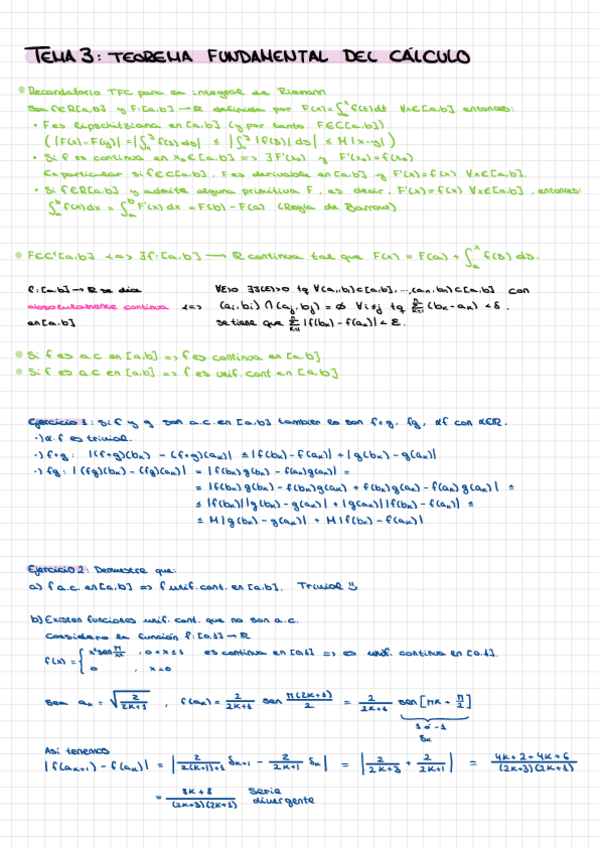 TEMA 3: TEOREMA FUNDAMENTAL DEL CÁLCULO
Recordatorio TFC para la integral de Riemann
Sea f∈R[a,b] y F:[a,b]→ℝ definida por F(x)=∫ₐˣ f(t)dt ∀x∈[a,b] entonces:
• F es lipschitziana en [a,b] (y por tanto F∈C[a,b])
(|F(x)-F(y)| = |∫ₓʸ f(s) ds| ≤ |∫ₓʸ |f(s)| ds| ≤ M|x-y|)
• Si f es continua en x₀∈[a,b] => ∃F'(x₀) y F'(x₀)=f(x₀)
En particular si f∈C[a,b], F es derivable en [a,b] y F'(x)=f(x) ∀x∈[a,b].
• Si f∈R[a,b] y admite alguna primitiva F, es decir, F'(x)=f(x) ∀x∈[a,b], entonces:
∫ₐᵇ f(x)dx = ∫ₐᵇ F'(x)dx = F(b)-F(a) (Regla de Barrow)
F∈C¹[a,b] <=> ∃f:[a,b]→ℝ continua tal que F(x) = F(a) + ∫ₐˣ f(s) ds.
f:[a,b]→ℝ se dice ∀ε>0 ∃δ(ε)>0 tq ∀(a₁,b₁)⊂[a,b],...,(aₙ,bₙ)⊂[a,b] con
absolutamente continua <=> (aᵢ,bᵢ)∩(aⱼ,bⱼ)=∅ ∀i≠j tq Σ(bₖ-aₖ)<δ,
en [a,b] se tiene que Σ|f(bₖ)-f(aₖ)|<ε.
Si f es a.c en [a,b] => f es continua en [a,b]
Si f es a.c en [a,b] => f es unif. cont en [a,b]
Ejercicio 1: Si f y g son a.c. en [a,b] también lo son f+g, fg, αf con α∈ℝ.
·) α·f es trivial.
·) f+g: |(f+g)(bₖ) - (f+g)(aₖ)| ≤ |f(bₖ)-f(aₖ)| + |g(bₖ)-g(aₖ)|
·) fg: |(fg)(bₖ) - (fg)(aₖ)| = |f(bₖ)g(bₖ) - f(aₖ)g(aₖ)| =
= |f(bₖ)g(bₖ) - f(bₖ)g(aₖ) + f(bₖ)g(aₖ) - f(aₖ)g(aₖ)| ≤
≤ |f(bₖ)||g(bₖ)-g(aₖ)| + |g(aₖ)||f(bₖ)-f(aₖ)| ≤
≤ M|g(bₖ)-g(aₖ)| + M|f(bₖ)-f(aₖ)|
Ejercicio 2: Demuestra que:
a) f a.c. en [a,b] => f unif. cont. en [a,b]. Trivial
b) Existen funciones unif. cont. que no son a.c.
Considero la función f:[0,1]→ℝ
f(x) = { x² sen π/x² , 0<x≤1 es continua en [0,1] => es unif. continua en [0,1].
0 , x=0
Sea aₖ = √(2/(2k+1)) , f(aₖ) = 2/(2k+1) sen π(2k+1)/2 = 2/(2k+1) sen[πk + π/2]
1 ó -1
δₖ
Así tenemos
|f(aₖ₊₁) - f(aₖ)| = |2/(2(k+1)+1) δₖ₊₁ - 2/(2k+1) δₖ| = |2/(2k+3) + 2/(2k+1)| = (4k+2+4k+6)/((2k+3)(2k+1))
= (8k+8)/((2k+3)(2k+1)) serie
divergente